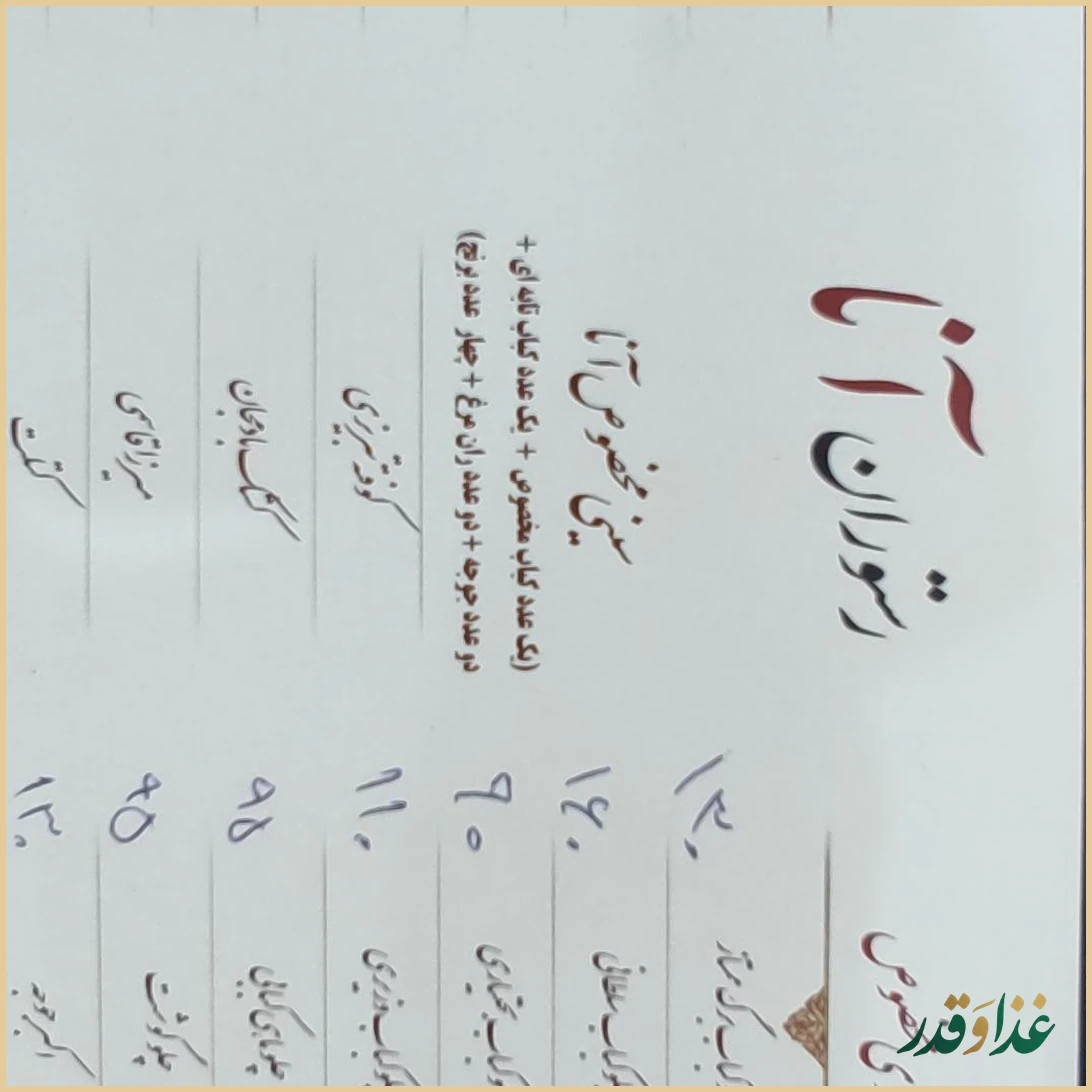 رستوران آنا
سینی مخصوص آنا
(یک عدد کباب مخصوص + یک عدد کباب تابه ای +
دو عدد جوجه + دو عدد ران مرغ + چهار عدد برنج)
کوفته تبریزی
کشک بادمجان
میرزا قاسمی
مخصوص
کباب برگ ممتاز ۱۳۰
کباب سلطانی ۱۶۰
کباب بختیاری ۹۰
کباب وزیری ۱۱۰
چلوماهی کبابی ۹۵
چلو گوشت ۹۵
اکبر جوجه ۱۳۰
غذا و قدر